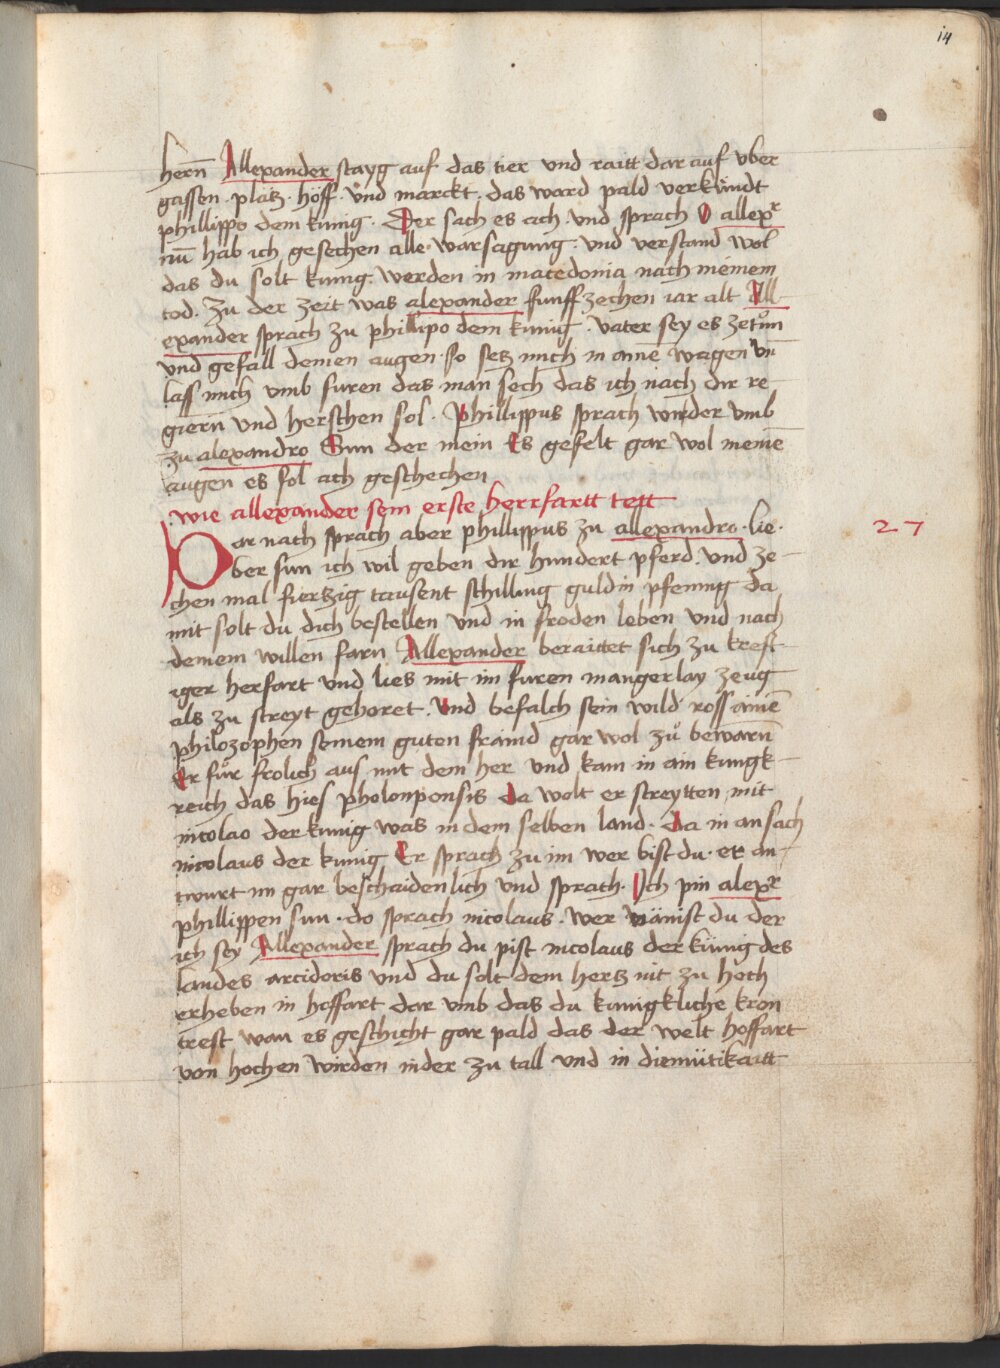 i4
hern̄ Allexander stayg auf das tier vnd raitt dar auf vber
gassen · platz · höff · vnd marckt · das ward pald verkündt
phillippo dem kunig · Der sach es ach · vnd sprach O allexr
nu̅ hab ich gesechen alle warsagung · vnd verstand wol
das du solt kunig werden in macedonia nach meinem
tod · Zu der zeit was alexander funffzechen iar alt All
exander sprach zu phillipo dem kunig · vater sey es zetůn
vnd gefall deinen augen · so setz mich in aine̅ wagen vn̅
lass mich vmb furen das man sech das ich nach dir re
giern vnd herschen sol · Phillippus sprach wider vmb
zu alexandro Sun der mein Es gefelt gar wol meine̅
augen es sol ach geschechen
wie allexander sein erste herrfartt tett
Dar nach sprach aber phillippus zu allexandro · lie ·
ber sun ich wil geben dir hundert pferd · vnd ze
chen mal fiertzig tausent schilling guldin pfening da
mit solt du dich bestellen vnd in froden leben vnd nach
deinem willen farn Allexander beraittet sich zu kreft
iger herfart vnd lies mit im furen mangerlay zeug
als zu streyt gehoret · Vnd befalch sein wild ross aine̅
philozophen seinem guten fraind gar wol zů bewarn̄
Er fůr frolich aus mit dem her vnd kam in ain kungk
reich das hies pholonponsis Da wolt er streytten mit
nicolao der kunig was in dem selben land · Da in an sach
nicolaus der kunig Er sprach zu im wer bist du · er an
twurt im gar beschaidenlich vnd sprach · Ich pin alexr
phillippen sun · do sprach nicolaus · wer mänist du der
ich sey Allexander sprach du pist nicolaus der künig des
landes arcidoris vnd du solt dem hertz nit zu hoch
erheben in hoffart dar vmb das du kunigkliche kron
trest wan es geschicht gar pald das der welt hoffart
von hochen wirden nider zu tall vnd in diemütikaitt
27